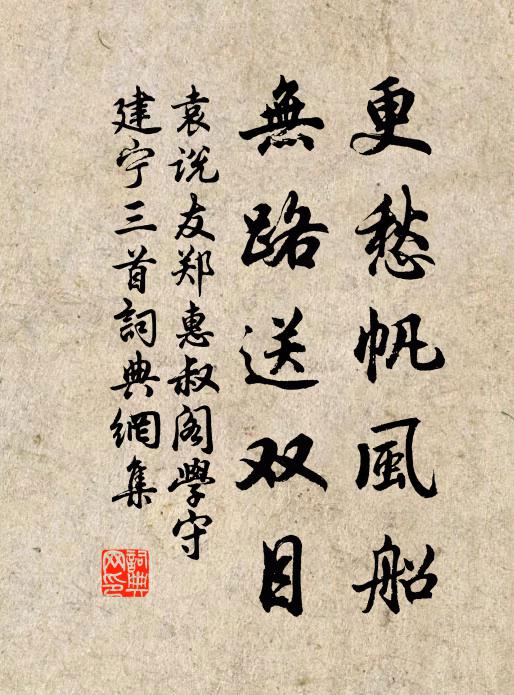 更愁帆風船
無路送双目
袁说友郑惠叔阁學守
建宁三首詞典網集
詞典
网印